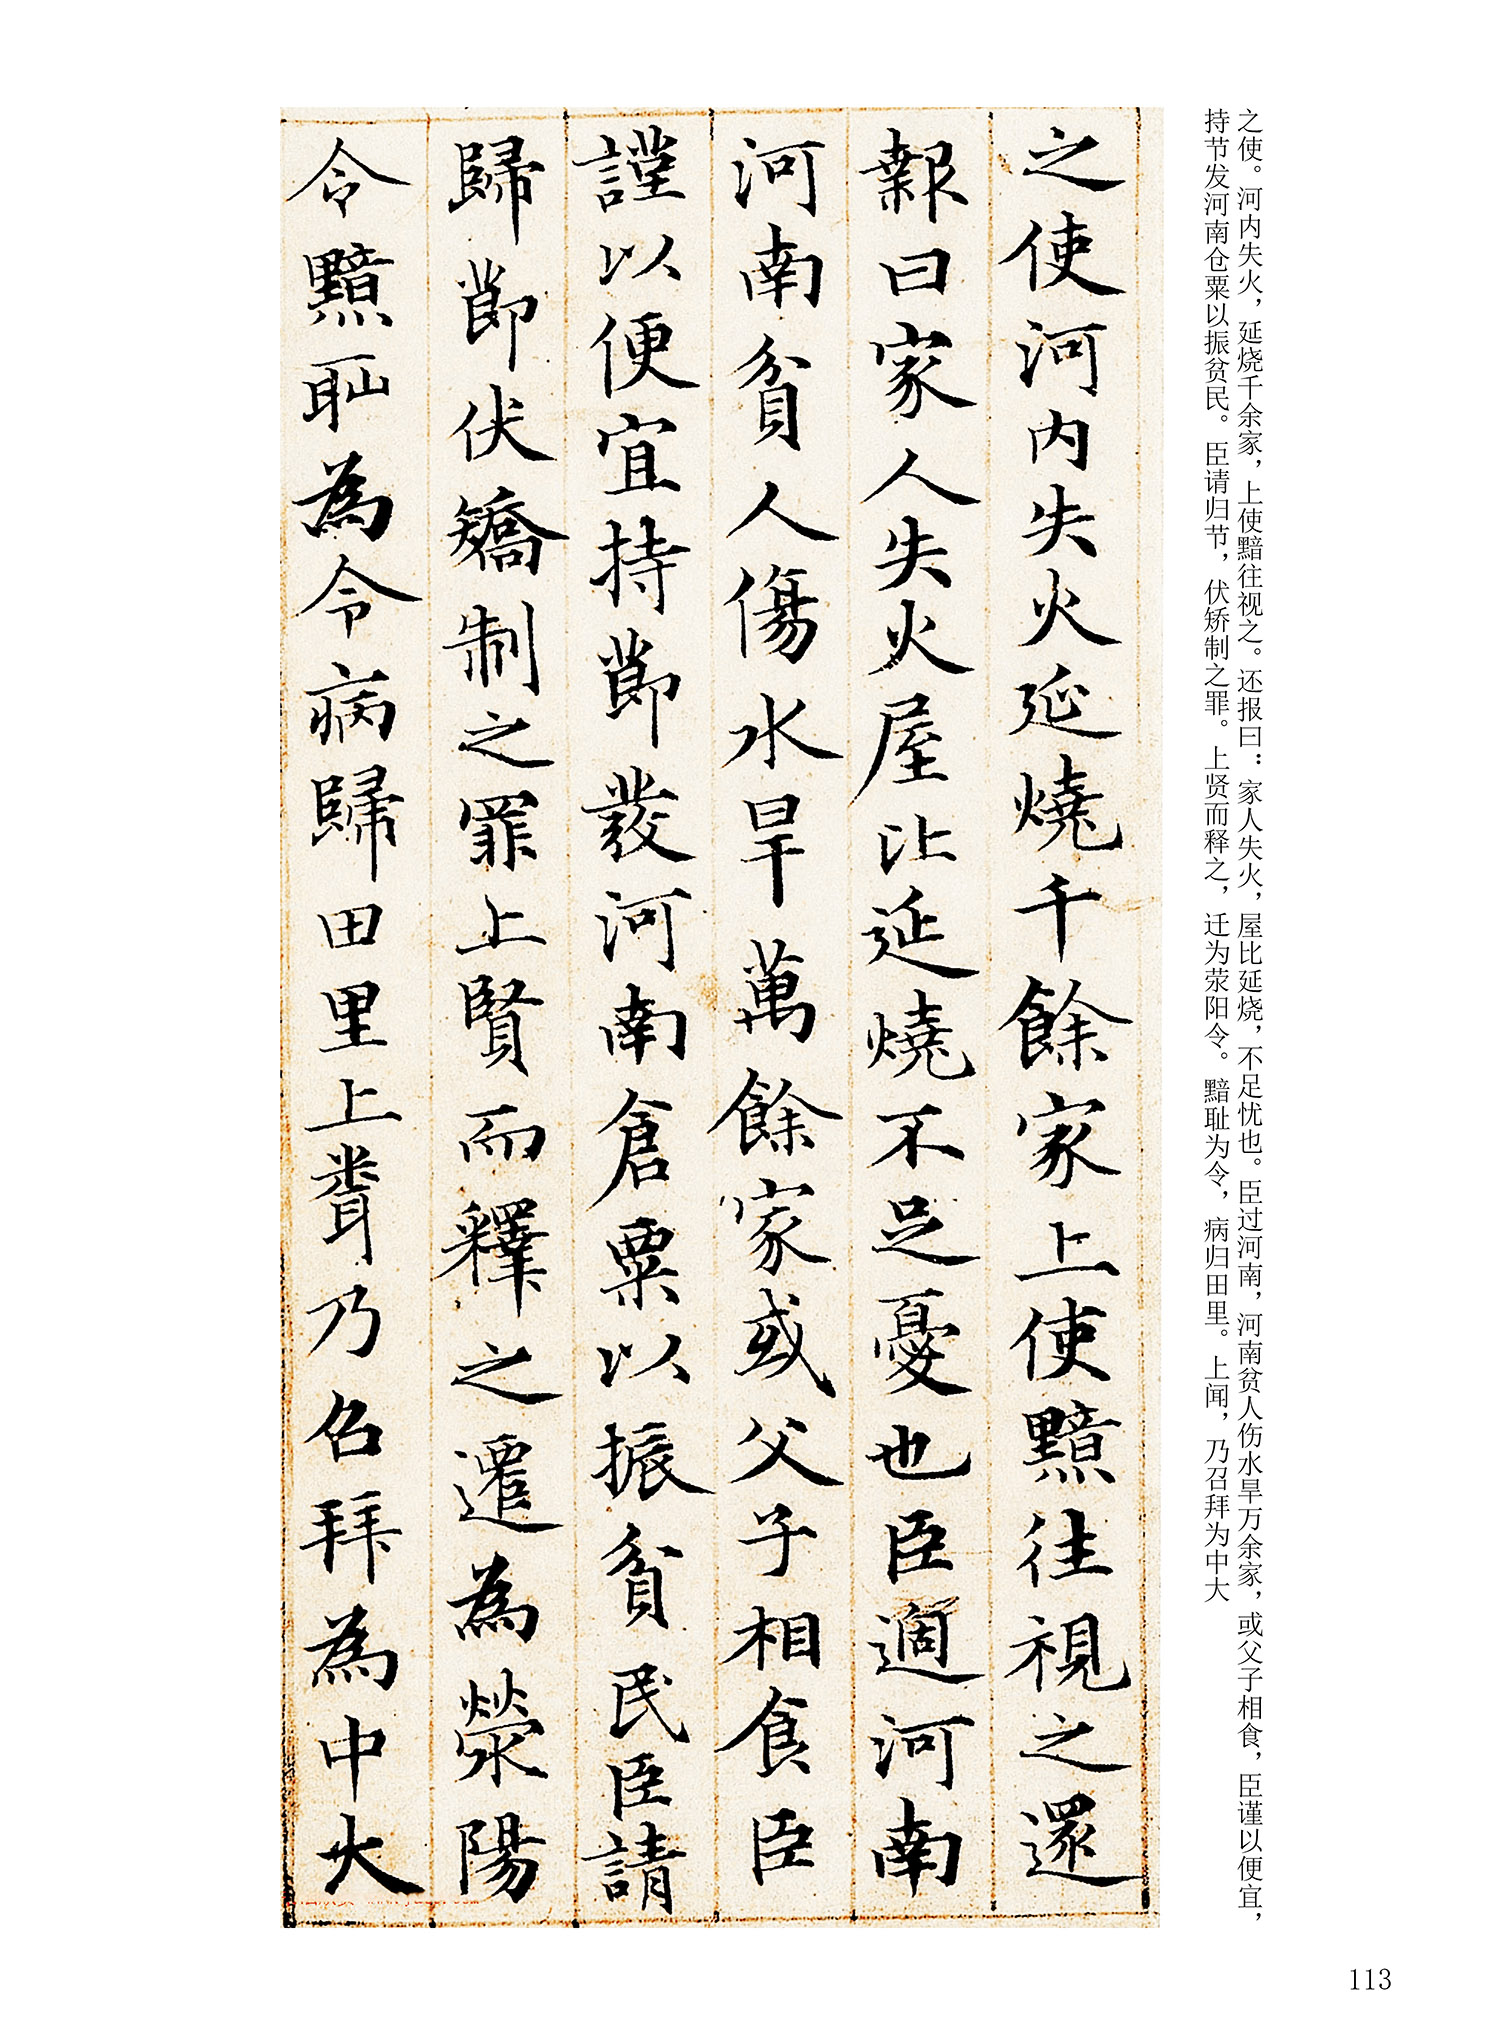 之使。河内失火，延烧千余家，上使黯往视之。还报曰：家人失火，屋比延烧，不足忧也。臣过河南，河南贫人伤水旱万余家，或父子相食，臣谨以便宜，
持节发河南仓粟以振贫民。臣请归节，伏矫制之罪。上贤而释之，迁为荥阳令。黯耻为令，病归田里。上闻，乃召拜为中大
之使河内失火延燒千餘家上使黯往視之還
報曰家人失火屋比延燒不足憂也臣過河南
河南貧人傷水旱萬餘家或父子相食臣
謹以便宜持節發河南倉粟以振貧民臣請
歸節伏矯制之罪上賢而釋之遷為滎陽
令黯恥為令病歸田里上聞乃召拜為中大
113